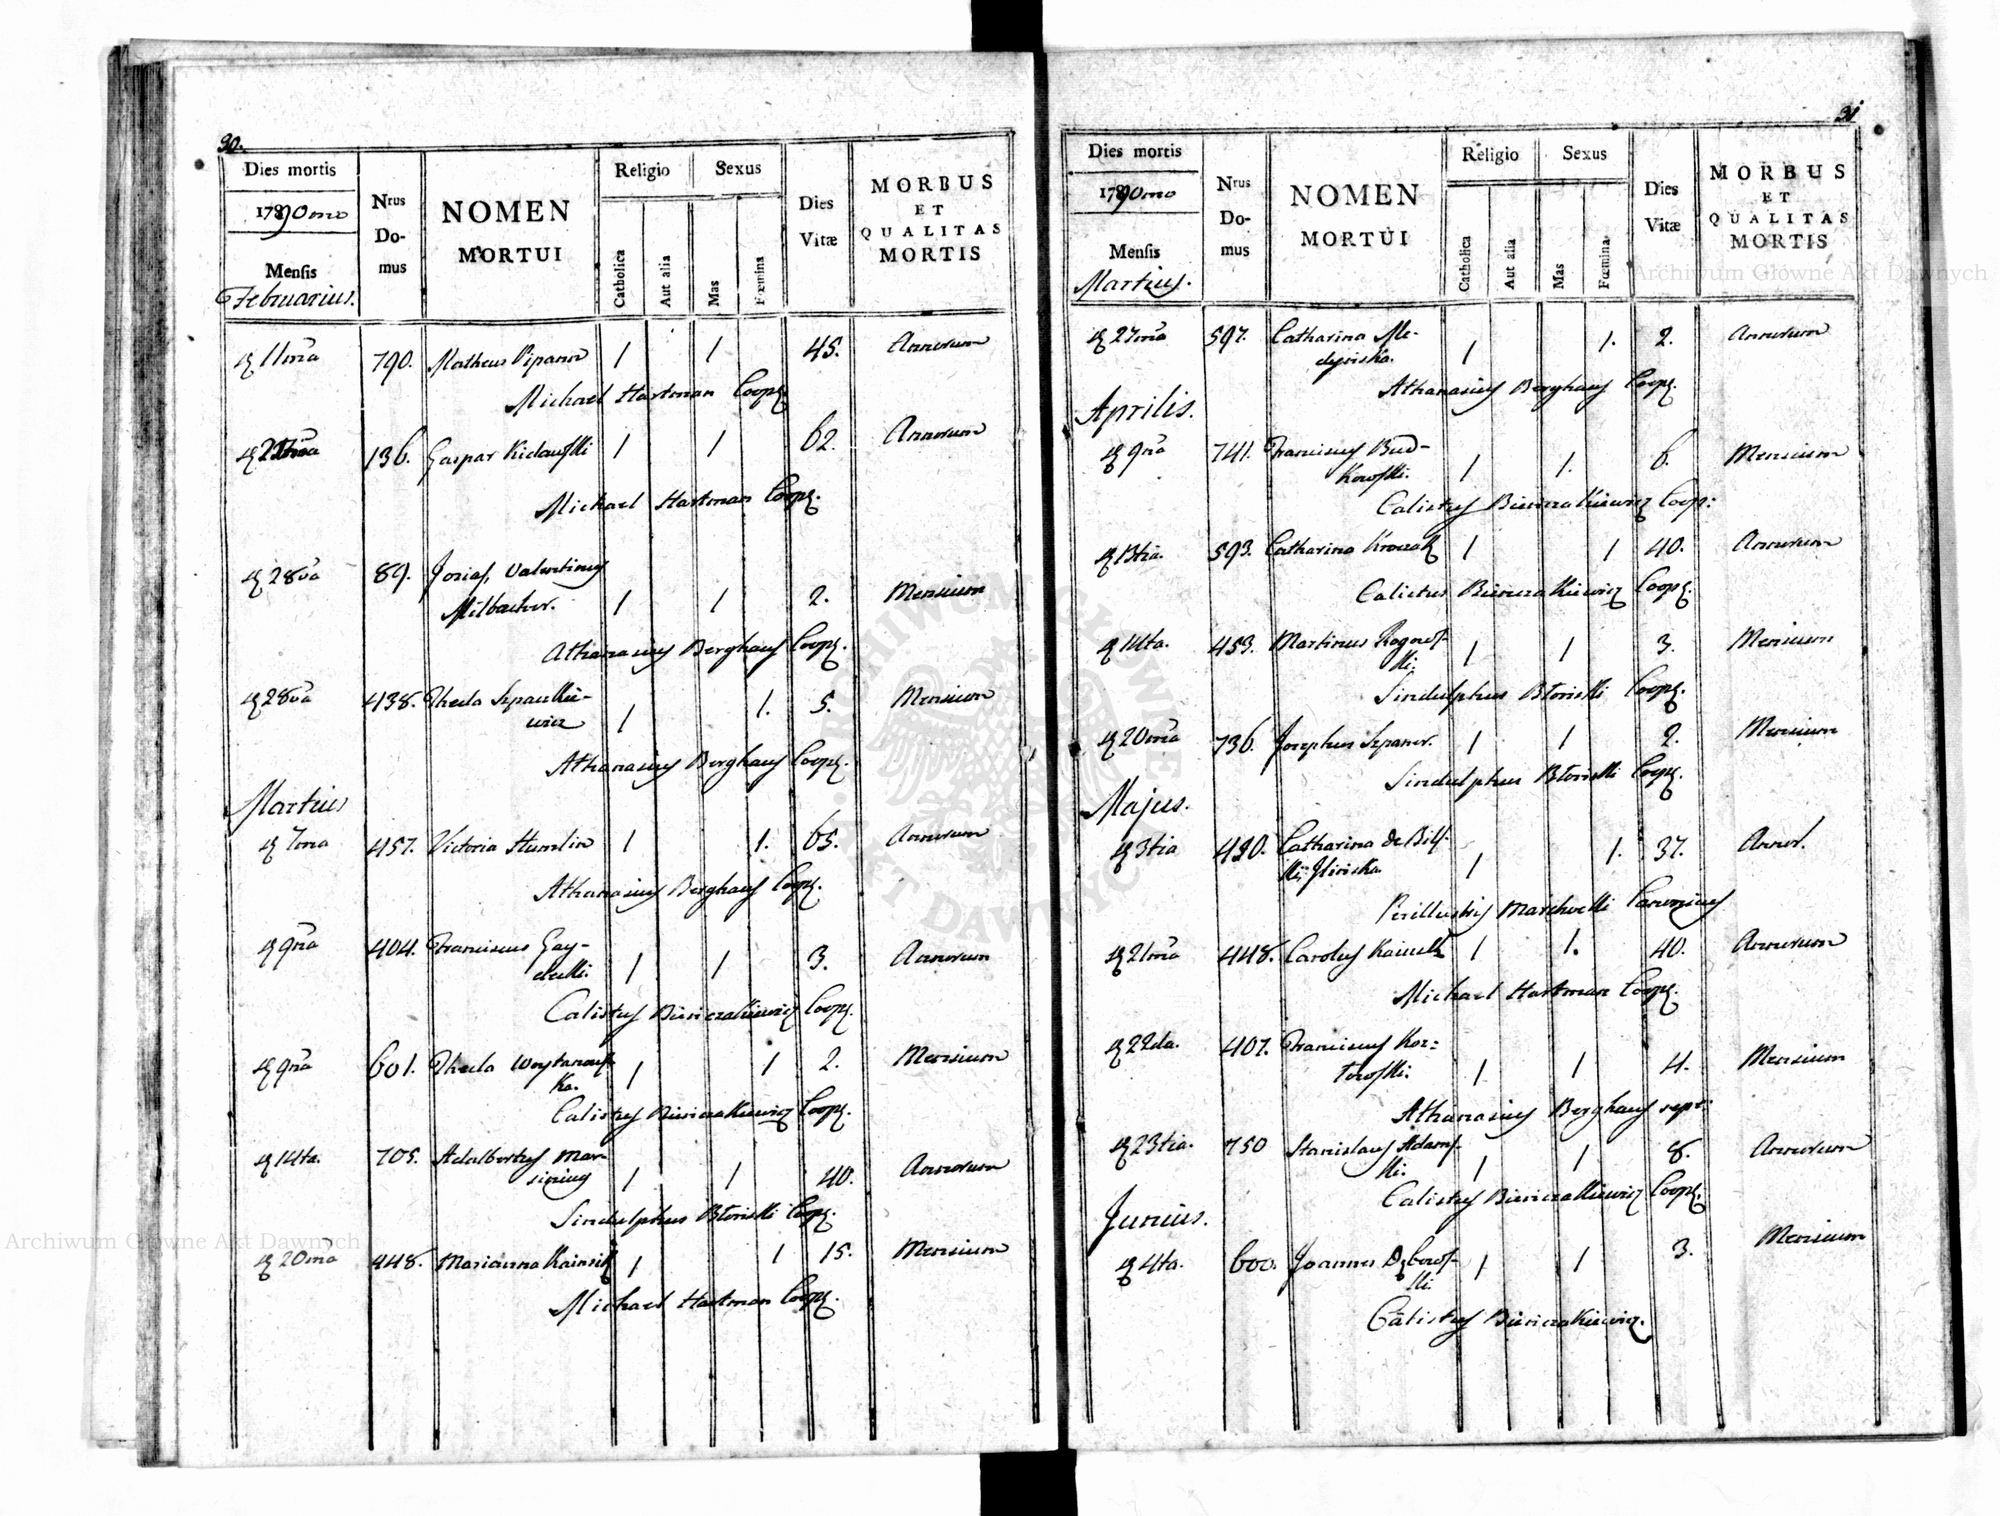 30.
Dies mortis
1790mo
Mensis
Februarius.
Nrus Do- mus
NOMEN
MORTUI
Religio
Catholica
Aut alia
Sexus
Mas
Fœmina
Dies Vitæ
MORBUS
ET
QUALITAS
MORTIS
11ma 790. Matheus Pipann 1 1 45. Annorum
Michael Hartman Coop.
136. Gaspar Kidawski 1 1 62. Annorum
Michael Hartman Coop.
28va 89. Josias, Valentinus
Milbacher. 1 1 2. Mensium
Athanasius Berghaus Coop.
28va 438. Thecla Szpaulkie-
wicz 1 1. 5. Mensium
Athanasius Berghaus Coop.
Martius
7ma 457. Victoria Humlin 1 1. 65. Annorum
Athanasius Berghaus Coop.
9na 404. Franciscus Gay-
delki. 1 1 3. Annorum
Calistus Coop.
9na 601. Thecla Woytanows-
ka. 1 1 2. Mensium
Calistus Coop.
14ta. 705. Adalbertus Mar-
1 1 40. Annorum
Sindulphus Coop.
20ma 448. Marianna 1 1 15. Mensium
Michael Hartman Coop.
31
Dies mortis
1790mo
Mensis
Martius.
Nrus Do- mus
NOMEN
MORTUI
Religio
Catholica
Aut alia
Sexus
Mas
Fœmina
Dies Vitæ
MORBUS
ET
QUALITAS
MORTIS
27ma 597. Catharina Me-
1 1. 2. Annorum
Athanasius Berghaus Coop.
Aprilis.
9na 741. Franciscus Bud-
kowski. 1 1. 6. Mensium
Calistus Coop:
13tia. 593. Catharina Kroczak 1 1 40. Annorum
Calistus Coop.
14ta. 453. Martinus Rogows-
ki. 1 1 3. Mensium
Sindulphus Coop.
20ma 736. Josephus Szpaner. 1 1 2. Mensium
Sindulphus Coop.
Majus.
3tia 420. Catharina de Bils-
1 1. 37. Annor.
Perillustris Marchocki Canonicus
21ma 448. Carolus 1 1. 40. Annorum
Michael Hartman Coop.
22da. 407. Franciscus Kor=
towski. 1 1 4. Mensium
Athanasius Berghaus
23tia. 750 Stanislaus Adams-
ki. 1 1 8. Annorum
Calistus Coop.
Junius.
4ta. 600. Joannes Dębows-
ki. 1 1 3. Mensium
Calistus
Archiwum Główne Akt Dawnych
Archiwum Główne Akt Dawnych
ARCHIWUM GŁÓWNE AKT DAWNYCH